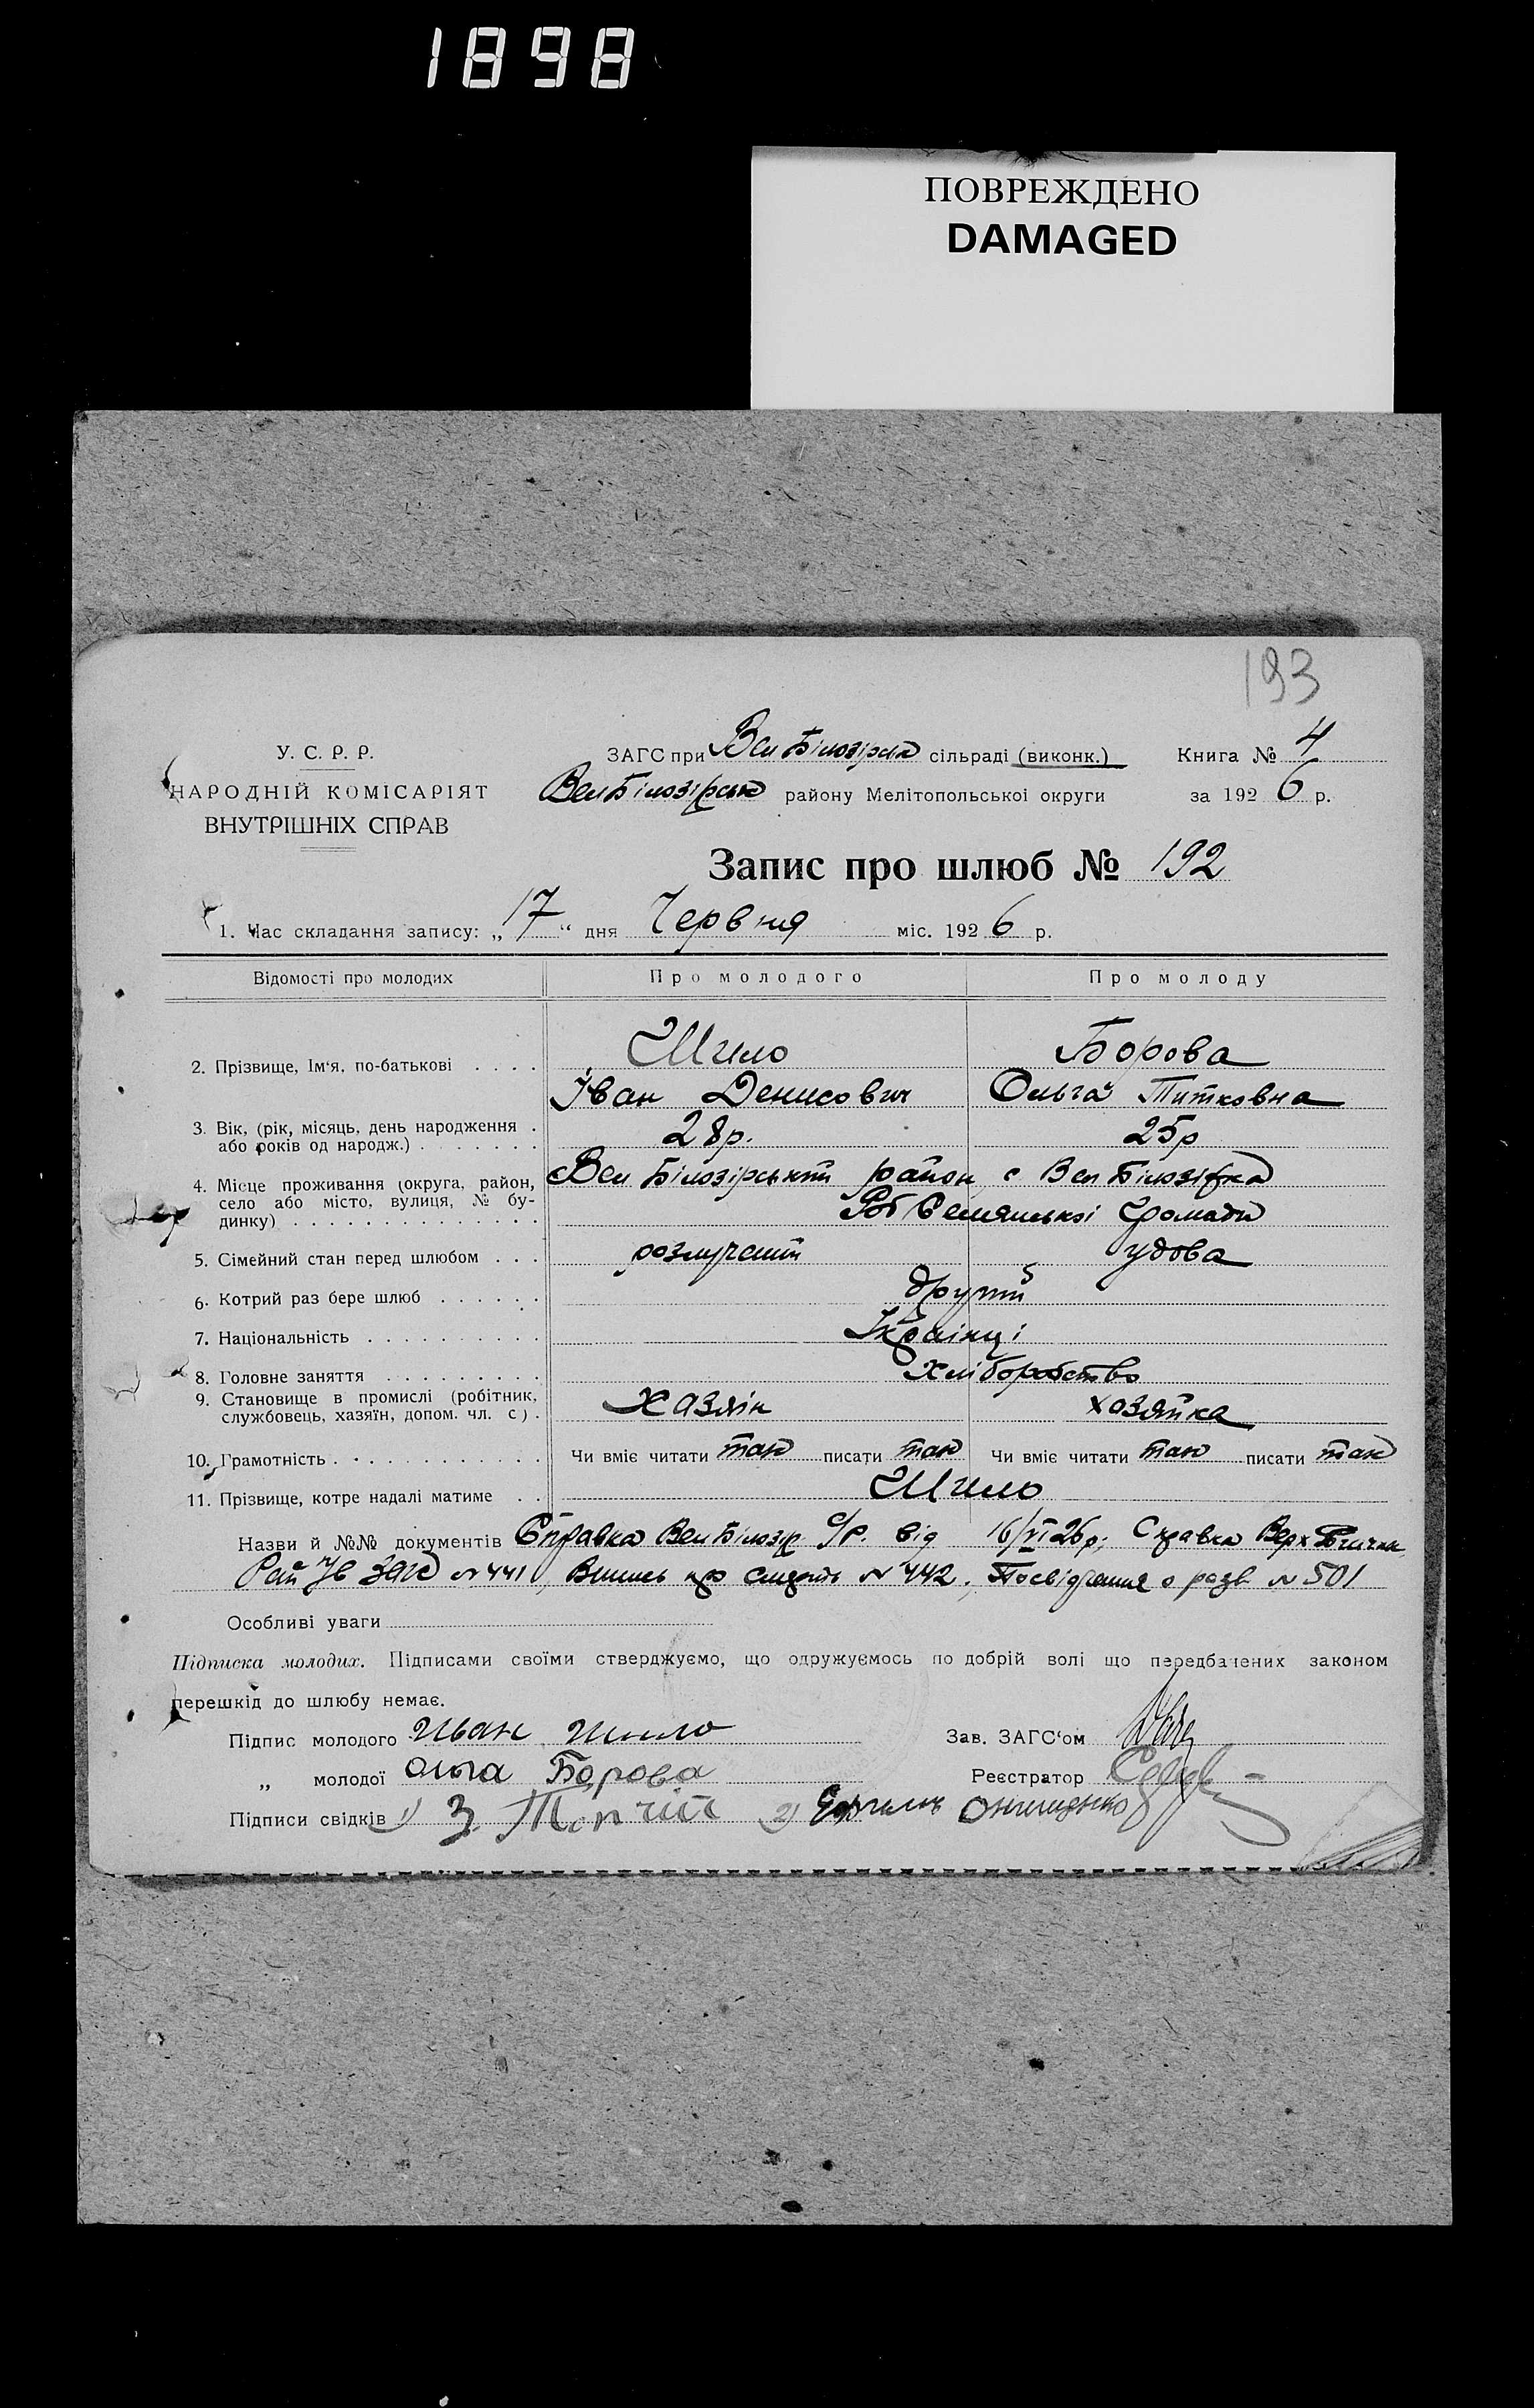 1898
ПОВРЕЖДЕНО
DAMAGED
193
У. С. Р. Р.
НАРОДНІЙ КОМІСАРІЯТ
ВНУТРІШНІХ СПРАВ
ЗАГС при Вел Білозірськ сільраді (виконк.) Книга № 4
Вел Білозірськ району Мелітопольської округи за 192 6 р.
Запис про шлюб № 192
1. Час складання запису: „ 17 “ дня Червня міс. 192 6 р.
Відомості про молодих Про молодого Про молоду
2. Прізвище, Ім‘я, по-батькові . . . . Шило Борова
Іван Денисович Ольга Титковна
3. Вік, (рік, місяць, день народження .
або років од народж.) . . . . . . . 28р. 25р
4. Місце проживання (округа, район,
село або місто, вулиця, № бу-
динку) . . . . . . . . . . . . . .
Вел Білозірський район с Вел Білозірка
Громади
5. Сімейний стан перед шлюбом . . . розлучений удова
6. Котрий раз бере шлюб . . . . . . другий
7. Національність . . . . . . . . . . Українці
8. Головне заняття . . . . . . . . . Хліборобство
9. Становище в промислі (робітник,
службовець, хазяїн, допом. чл. с) . Хазяін хозяйка
10. Грамотність . . . . . . . . . . . . Чи вміє читати так писати так Чи вміє читати так писати так
11. Прізвище, котре надалі матиме . . Шило
Назви й №№ документів Справка Вел Білозір с/р. від 16/VI 26р; Справка Верх
Рай № 441, Випись про смерть № 442. Посвідчення о разв № 501
Особливі уваги
Підписка молодих. Підписами своїми стверджуємо, що одружуємось по добрій волі що передбачених законом
перешкід до шлюбу немає.
Підпис молодого Иван Шило Зав. ЗАГС‘ом
„ молодої Ольга Борова Реєстратор
Підписи свідків 1) З. 2)